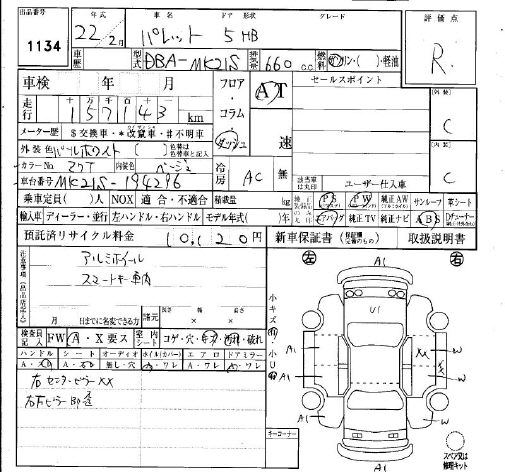 出品番号 年式 車名 ドア 形状 グレード 評価点
1134 22/2月 パレット 5 HB R
車歴 型式 DBA-MK21S 排気量 660cc 燃料 ガソリン・( )・軽油
車検 年 月 フロア・コラム・ダッシュ AT 速 セールスポイント
走行 十万千百十一 157143km
(外装) C
メーター歴 $交換車・*改竄車・#不明車
外装色 パールホワイト ( ) 色替は色替車と記入
カラーNo ZVT 内装色 ベージュ
(内装) C
冷房 AC 無
該当車は丸印 ユーザー仕入車
車台番号 MK21S-194296
乗車定員( )人 NOX 適合・不適合 積載量 kg
PS PW 純正AW サンルーフ 革シート
輸入車 ディーラー・並行 左ハンドル・右ハンドル モデル年式( )年
エアバッグ 純正TV 純正ナビ ABS
預託済リサイクル料金 10,120円 新車保証書 取扱説明書
アルミホイール
スマートキー車内
月 日までに名変できる方 諸元 長さ 幅 高さ
検査員記入 FW A・X要ス 室内 コゲ・穴・汚れ・破れ
ハンドル シート オーディオ ホイル(カバー) エアロ ドアミラー
右センターピラーXX
左 右
小キズ 小U
A1
U1
A1 A1 XX W
A1 W
A1
キーコーナー
スペア又は修理キット